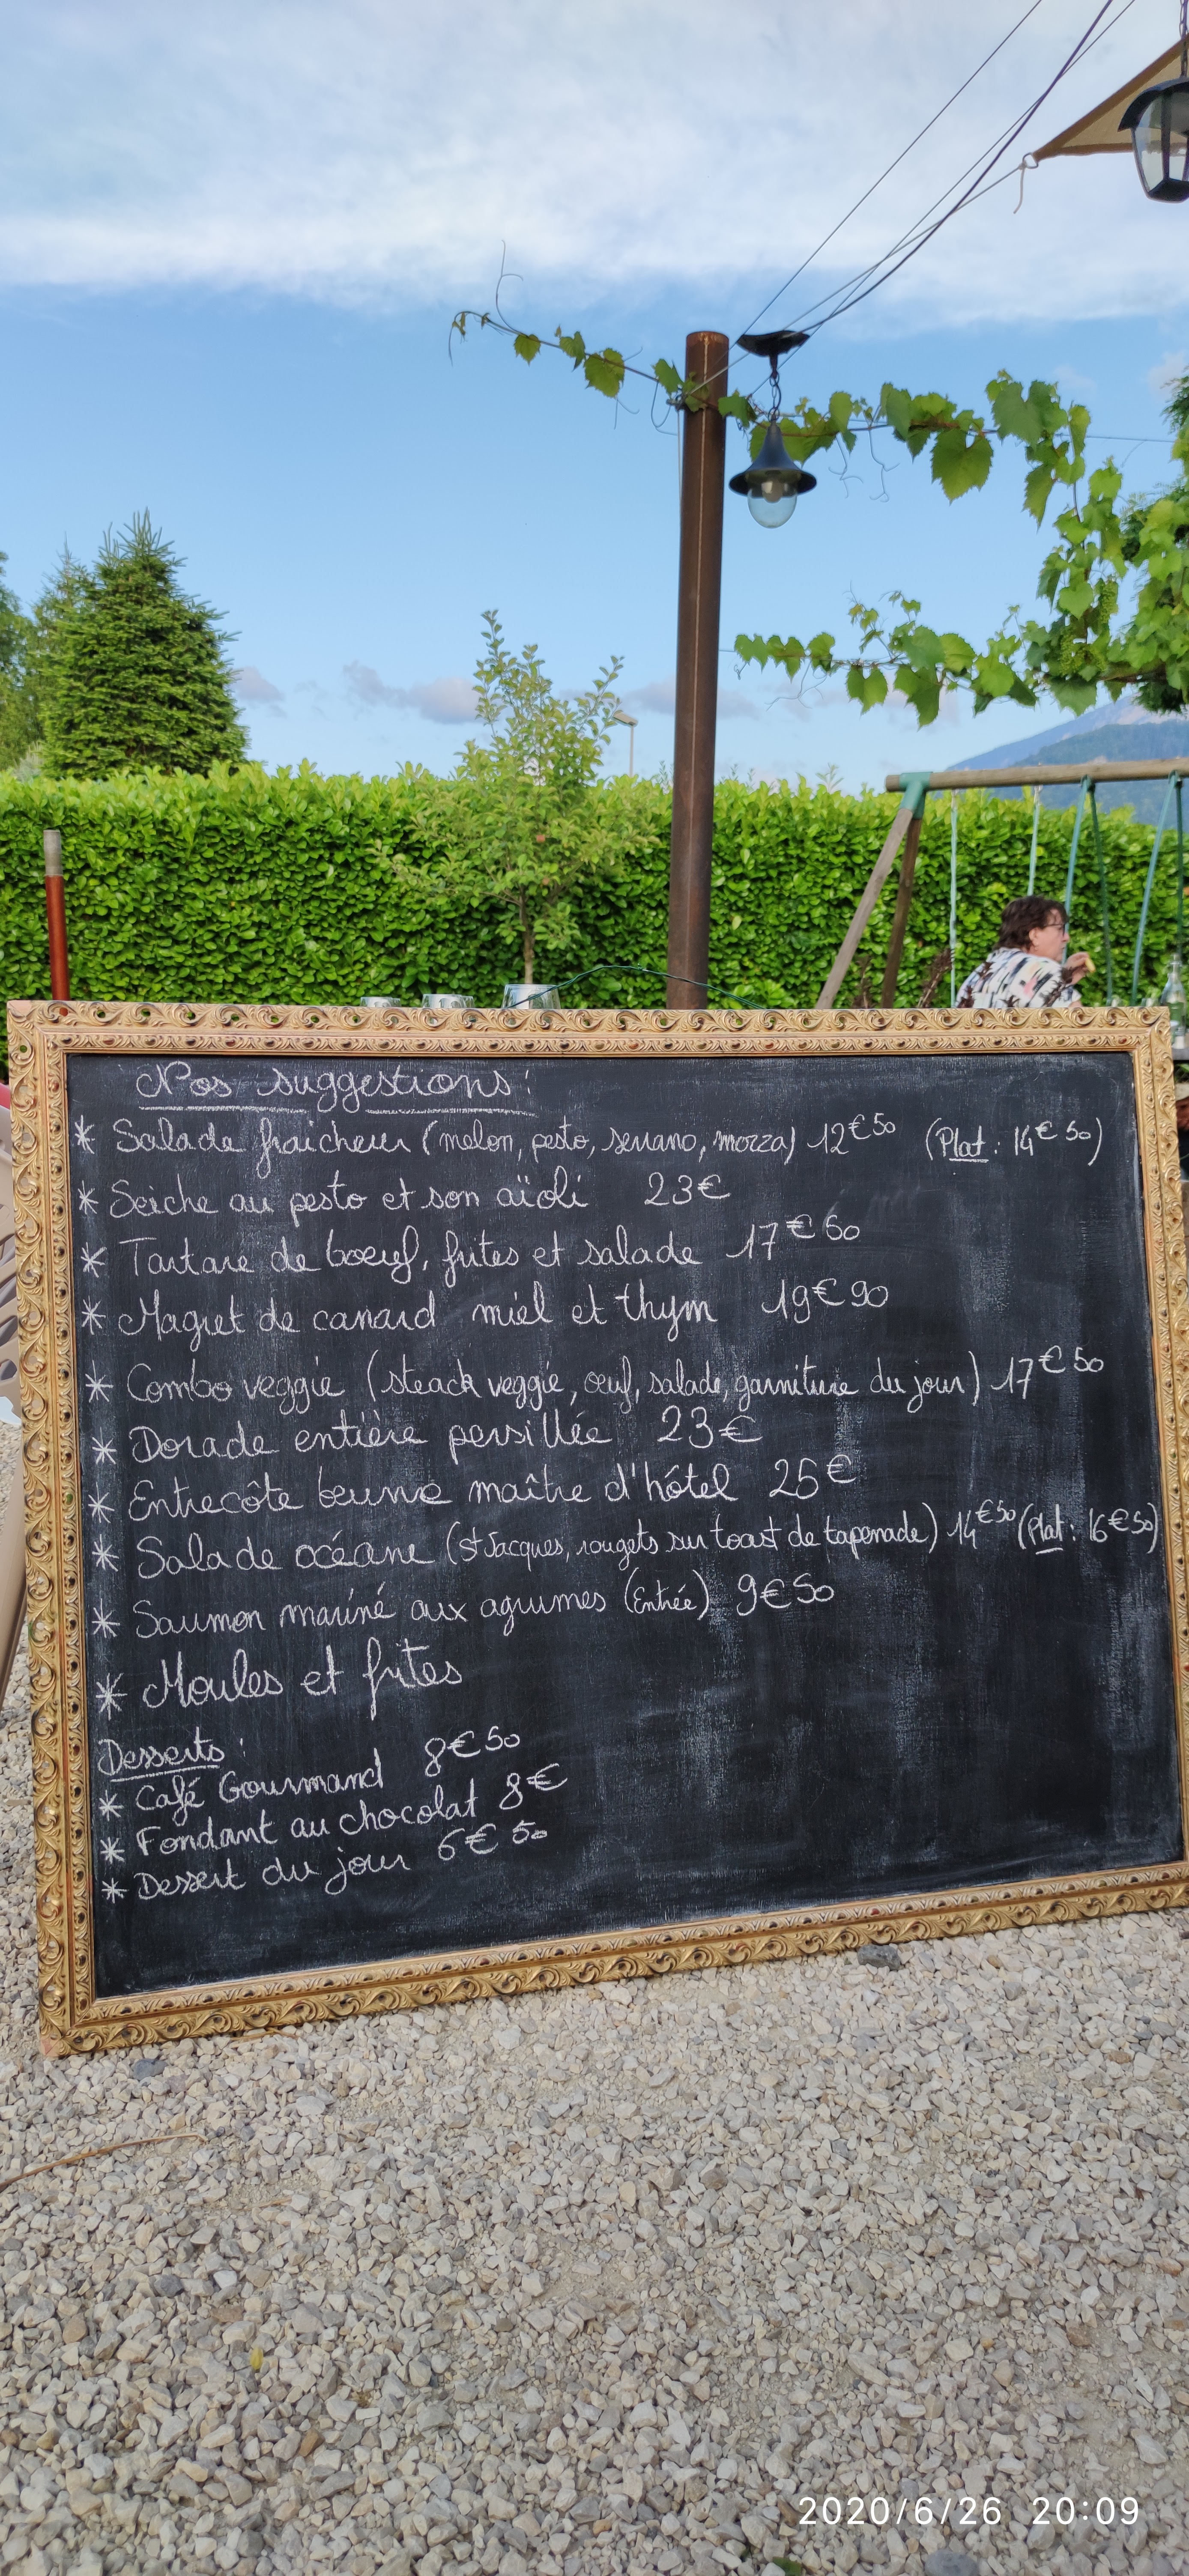 Nos suggestions :
* Salade fraicheur (melon, pesto, serrano, mozza) 12€50 (Plat : 14€50)
* Seiche au pesto et son aïoli 23€
* Tartare de boeuf, frites et salade 17€50
* Magret de canard miel et thym 19€90
* Combo veggie (steack veggie, oeuf, salade, garniture du jour) 17€50
* Dorade entière persillée 23€
* Entrecôte beurre maître d'hôtel 25€
* Salade océane (St Jacques, rougets sur toast de tapenade) 14€50 (Plat : 16€50)
* Saumon mariné aux agrumes (Entrée) 9€50
* Moules et frites
Desserts :
* Café Gourmand 8€50
* Fondant au chocolat 8€
* Dessert du jour 6€50
2020/6/26 20:09